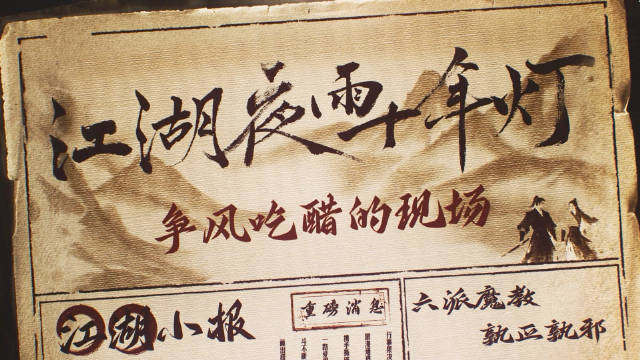 江湖夜雨十年灯
争风吃醋的现场
江湖小报
重磅消息
六派魔教
孰正孰邪